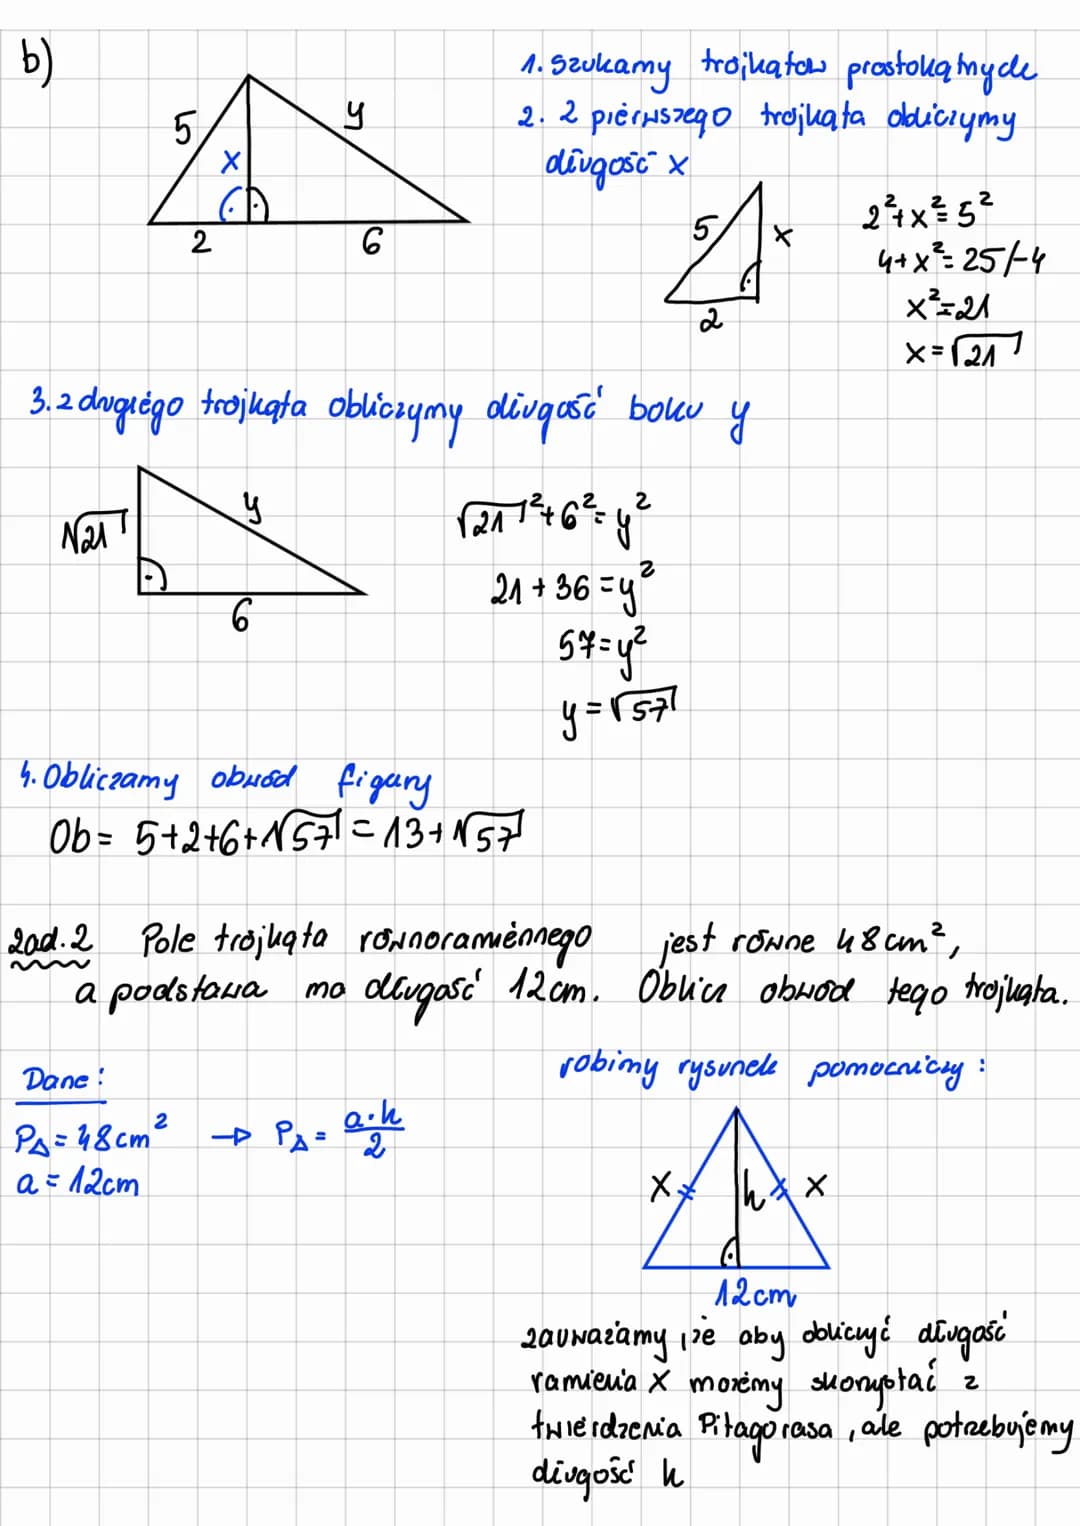 b)
5
y
x
2
6
1. Szukamy trójkątów prostokątnych
2. Z pierwszego trójkąta obliczymy
długość x
5
x
2
2²+x²=5²
4+x²=25/-4
x²=21
x=√21
3. Z drugiego trójkąta obliczymy długość boku y
√21
y
6
√21²+6²=y²
21+36=y²
57=y²
y=√57
4. Obliczamy obwód figury
Ob= 5+2+6+√57=13+√57
Zad.2 Pole trójkąta równoramiennego jest równe 48cm²,
a podstawa ma długość 12cm. Oblicz obwód tego trójkąta.
Dane:
P△=48cm² → P△= a·h/2
a=12cm
robimy rysunek pomocniczy:
x
h
x
12cm
zauważamy, że aby obliczyć długość
ramienia x możemy skorzystać z
twierdzenia Pitagorasa, ale potrzebujemy
długość h